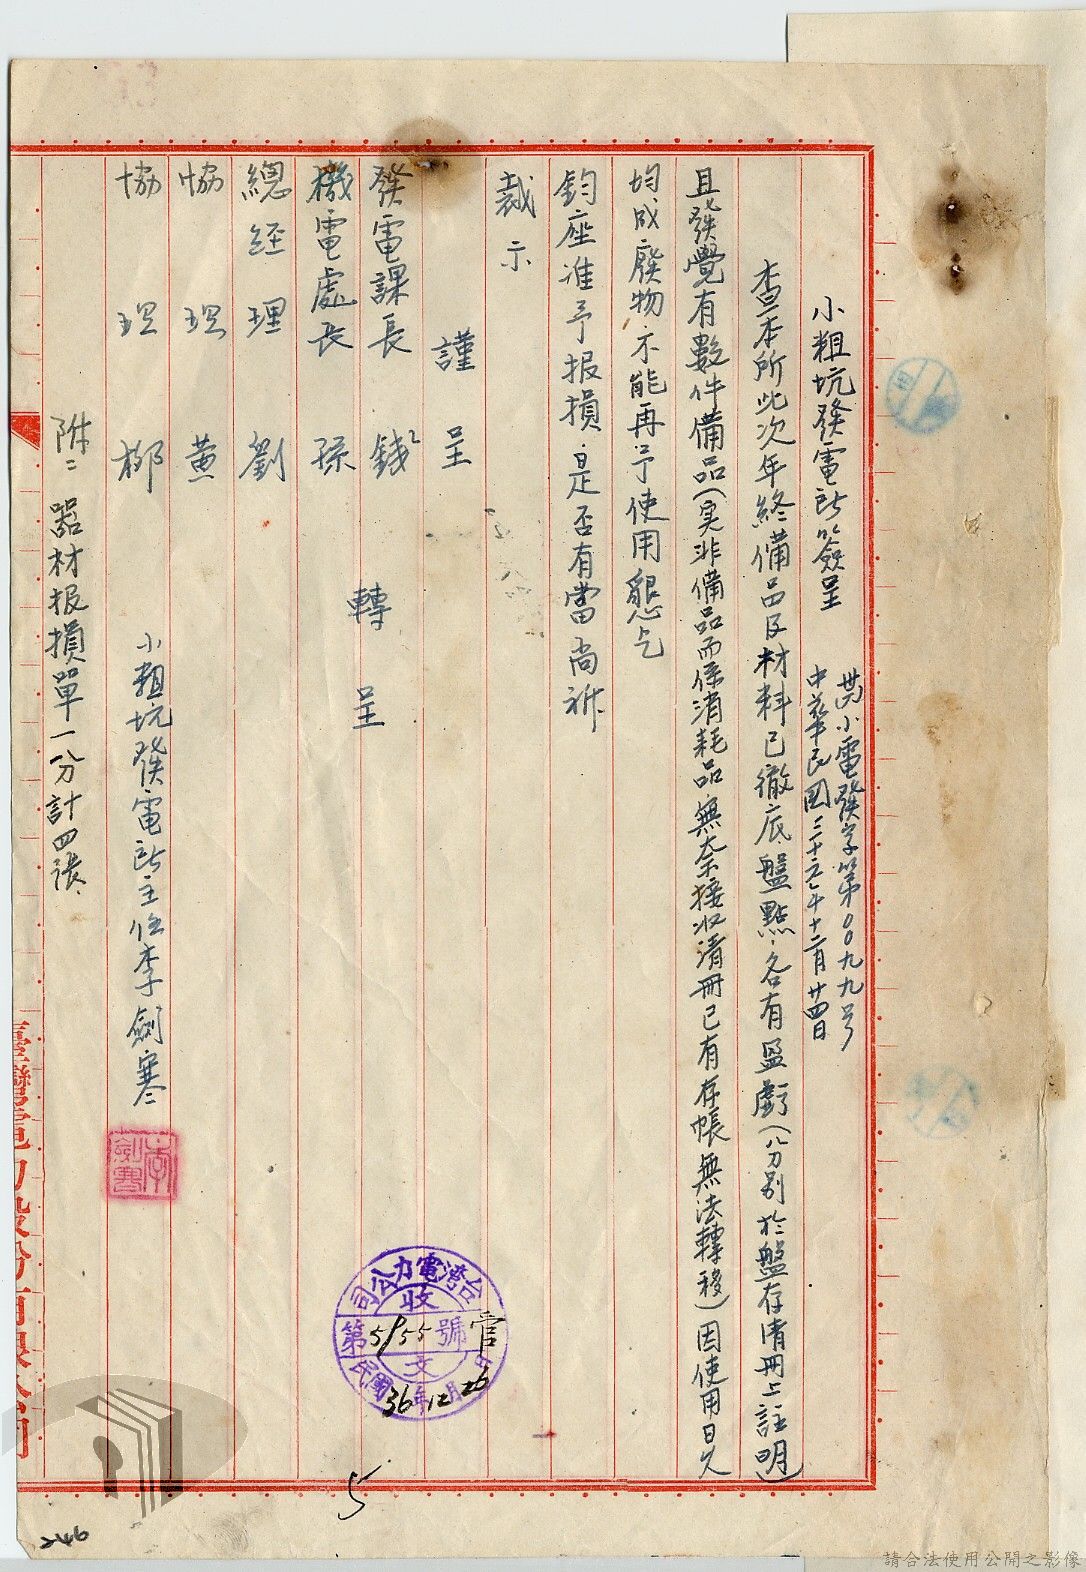 小粗坑發電所簽呈
卅六小電發字第00九九号
中華民國三十六年十二月廿四日
查本所此次年終備品及材料已徹底盤點各有盈虧(分別於盤存清冊上註明)
且發覺有數件備品(実非備品而係消耗品無奈接收清冊已有存帳無法轉移)因使用日久
均成廢物不能再予使用懇乞
鈞座准予报損是否有當尚祈
裁示
謹呈
發電課長 錢 轉呈
機電處長 孫
總經理 劉
協理 黄
協理 柳
小粗坑發電所主任李劍寒
李劍寒
附：器材报損單一份計四張
臺灣電力股份有限公司
台灣電力公司
收文
第5155號
管
民國36年12月26日
5
246
請合法使用公開之影像